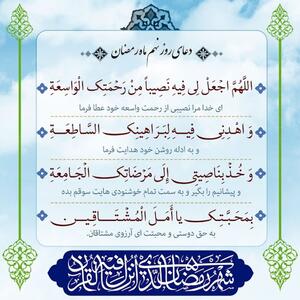 دعای روز نهم ماه رمضان
اللَّهُمَّ اجْعَلْ لِی فِیهِ نَصِیباً مِنْ رَحْمَتِکَ الْوَاسِعَةِ
ای خدا مرا نصیبی از رحمت واسعه خود عطا فرما
وَ اهْدِنِی فِیهِ لِبَرَاهِینِکَ السَّاطِعَةِ
و به ادله روشن خود هدایت فرما
وَ خُذْ بِنَاصِیَتِی إِلَی مَرْضَاتِکَ الْجَامِعَةِ
و پیشانیم را بگیر و به سمت تمام خوشنودی هایت سوقم بده
بِمَحَبَّتِکَ یَا أَمَلَ الْمُشْتَاقِینَ
به حق دوستی و محبتت ای آرزوی مشتاقان.
شهر رمضان الذی انزل فیه القرآن